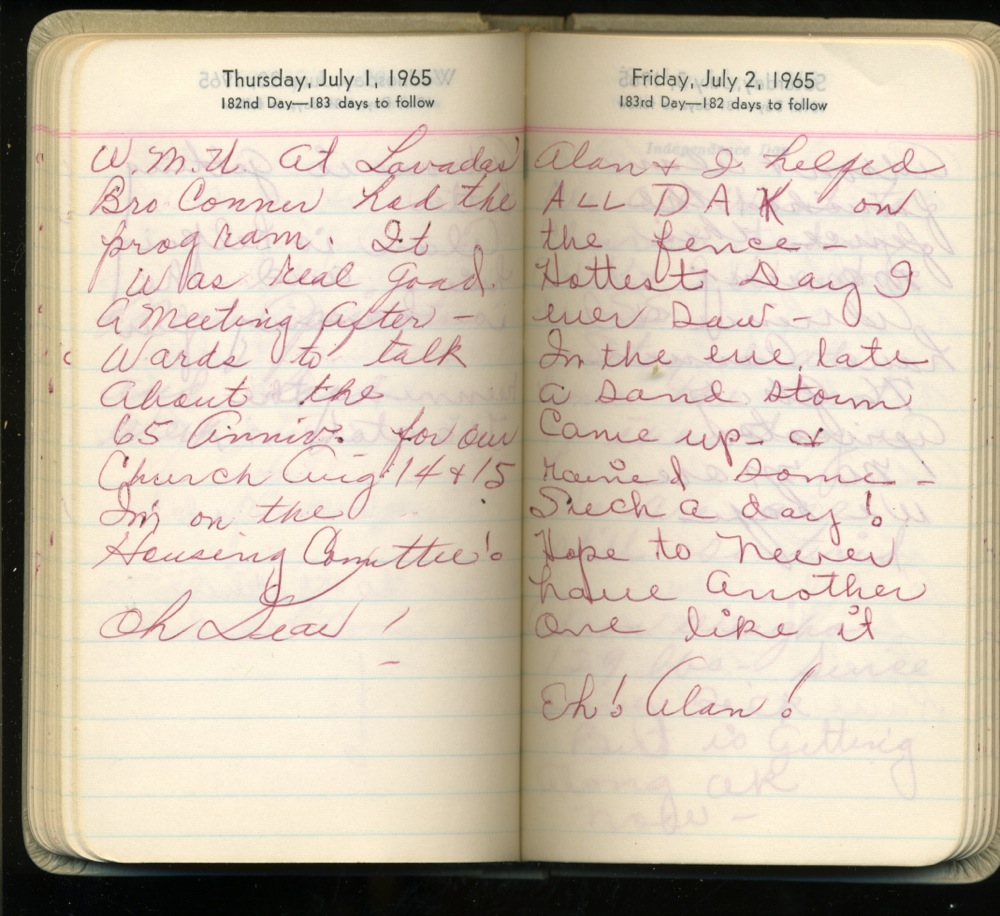 Thursday, July 1, 1965
182nd Day—183 days to follow
W.M.U. at Lavadas
Bro Conner had the
program. It
Was real good.
A Meeting after –
Wards to talk
About the
65 Anniv. for our
Church Aug 14 & 15
I'm on the
Housing Comittee!
Oh Dear!
Friday, July 2, 1965
183rd Day—182 days to follow
Independence Day
Alan & I helped
ALL DAK on
the fence –
Hottest Day I
ever Saw –
In the eve, late
a sand storm
Came up – &
rained some –
Such a day!
Hope to never
have another
one like it
Oh! Alan!